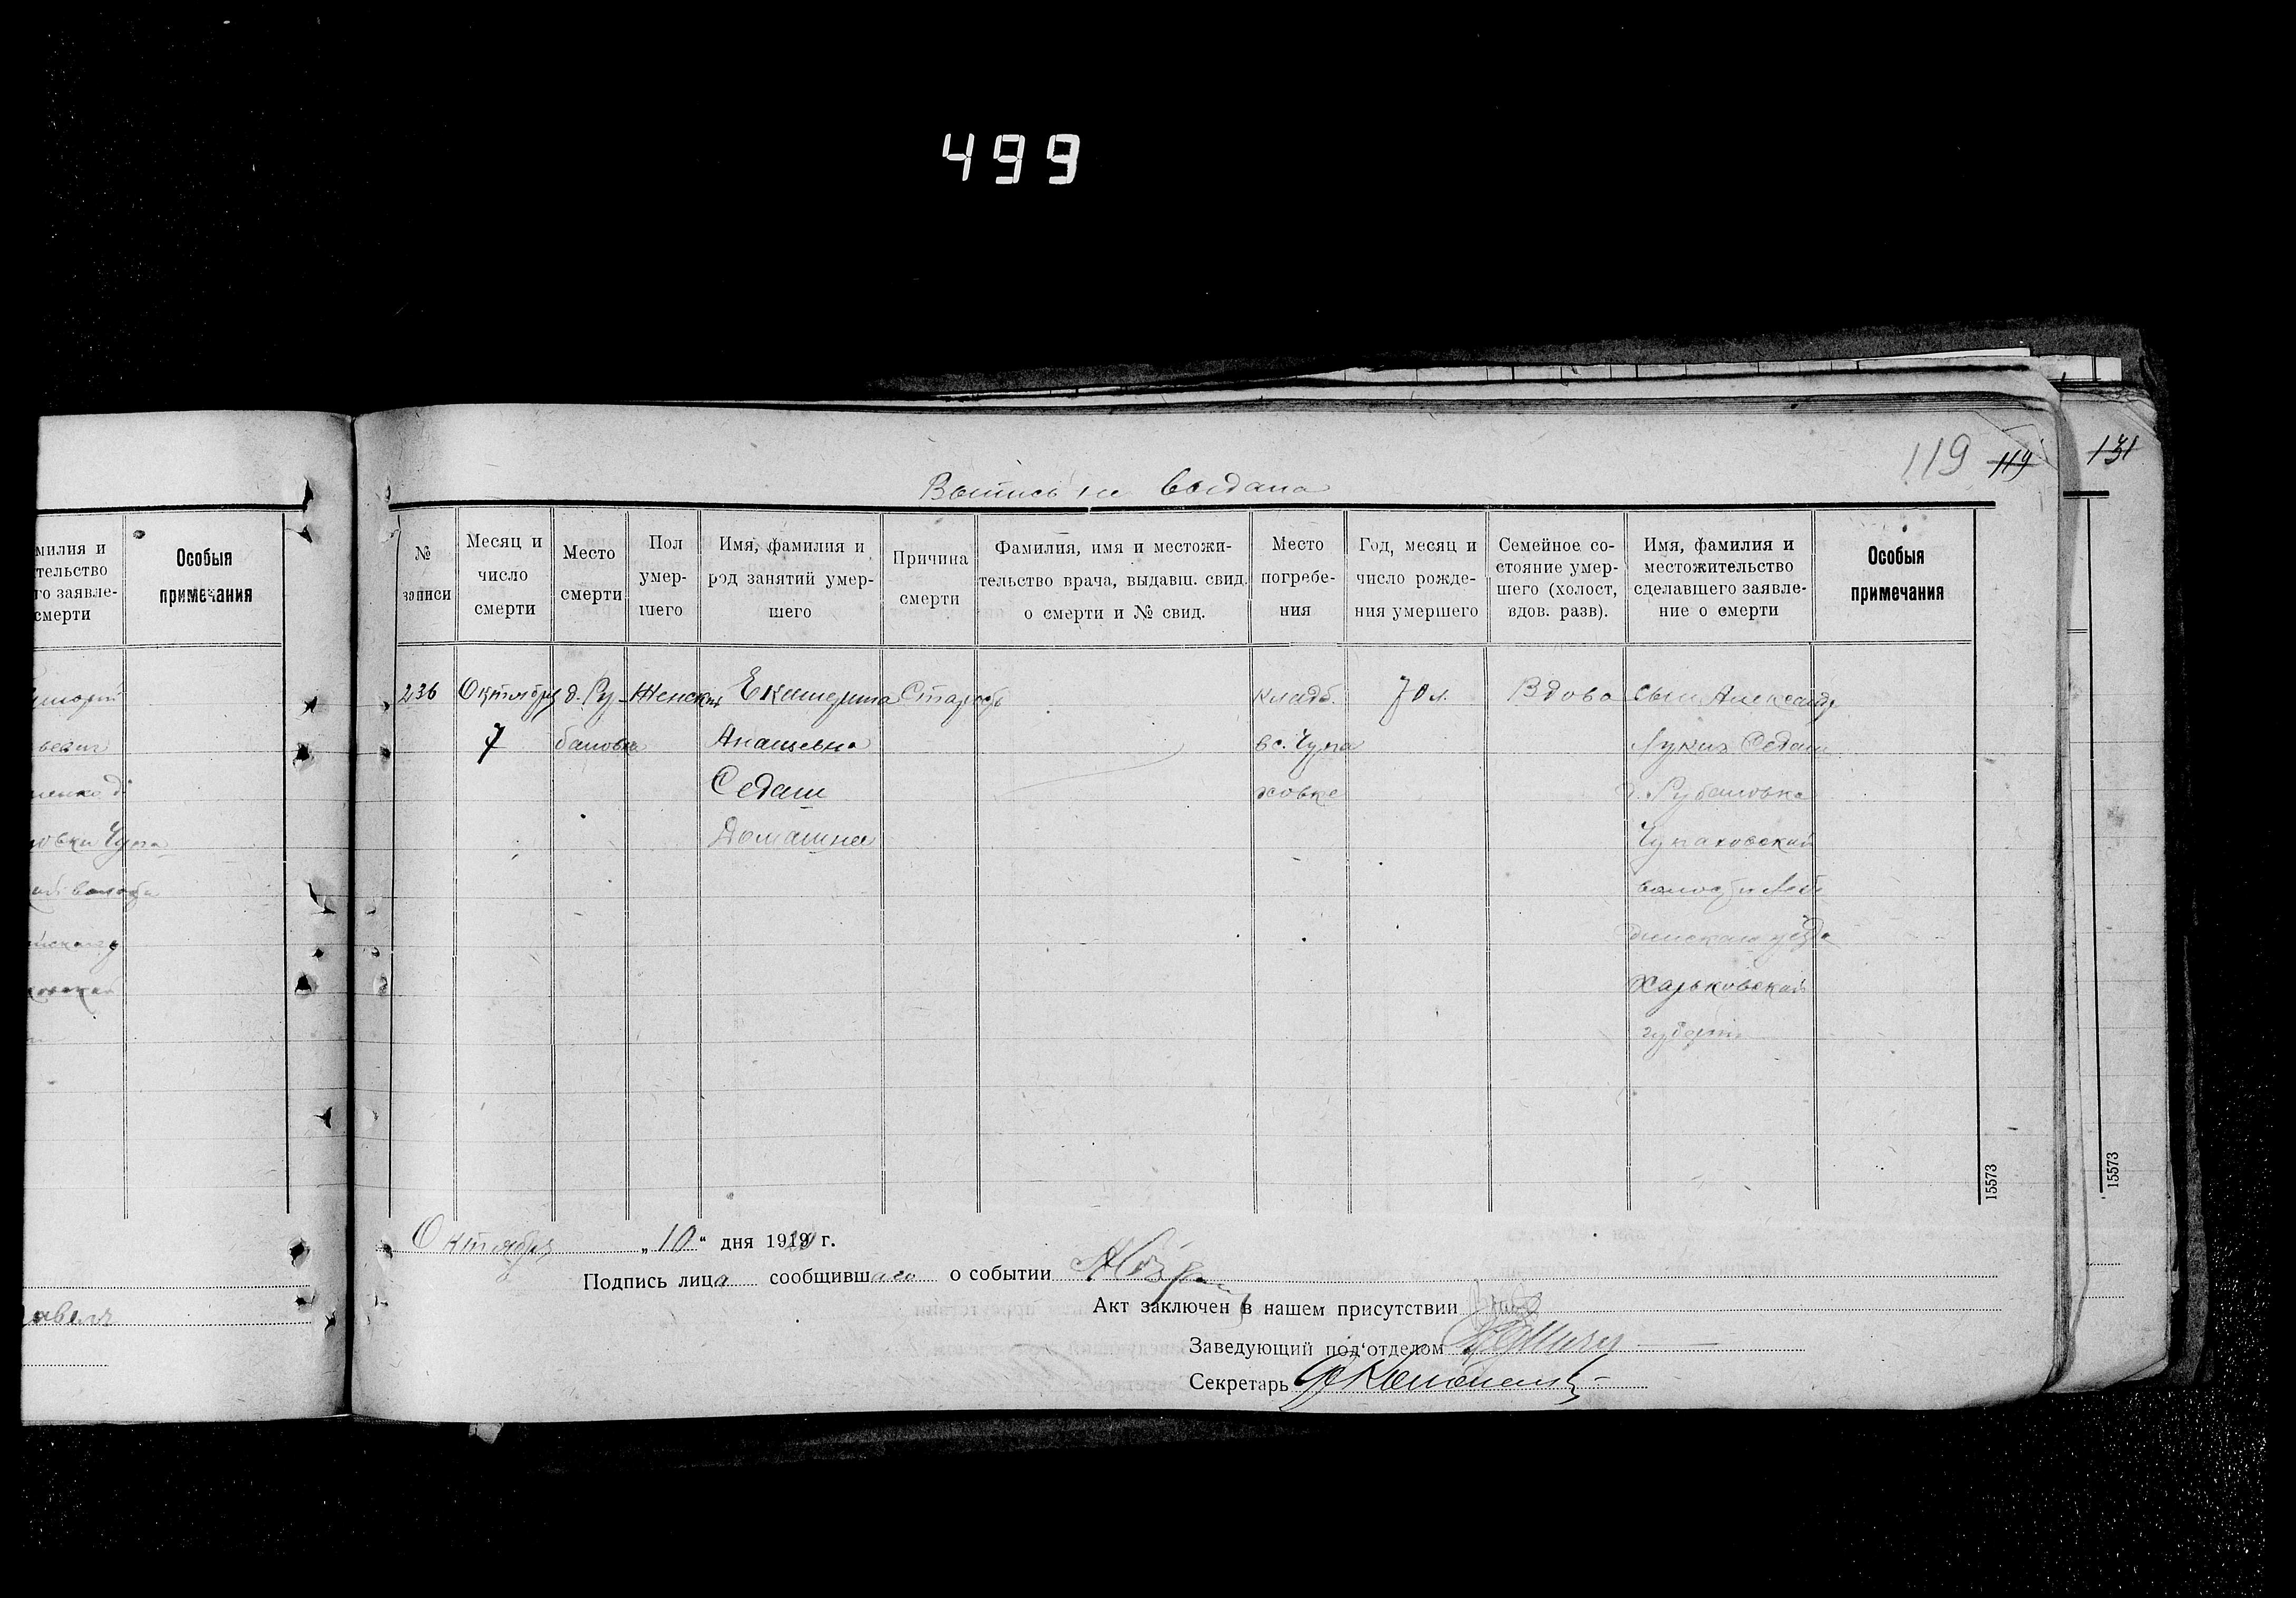 499
119 119 131
Выпись не выдана
милия и
тельство
го заявле-
смерти
Особыя
примечания
№
записи
Месяц и
число
смерти
Место
смерти
Пол
умер-
шего
Имя, фамилия и
род занятий умер-
шего
Причина
смерти
Фамилия, имя и местожи-
тельство врача, выдавш. свид.
о смерти и № свид.
Место
погребе-
ния
Год, месяц и
число рожде-
ния умершего
Семейное со-
стояние умер-
шего (холост,
вдов. разв).
Имя, фамилия и
местожительство
сделавшего заявле-
ние о смерти
Особыя
примечания
236
Октября
7
д. Ру-
бановка
Женский
Екатерина
Седаш
Домашнее
Старость
кладб.
в с. Чупа
ховке
70 л.
Вдова
сын Александр
Лукич Седаш
д. Рубановка
Чупаховской
волости Лебе
динского уезда
Харьковской
губерн.
15573
15573
Октября „10“ дня 1919 г.
Подпись лица сообщившаго о событии
Акт заключен в нашем присутствии
Заведующий под‘отделом
Секретарь